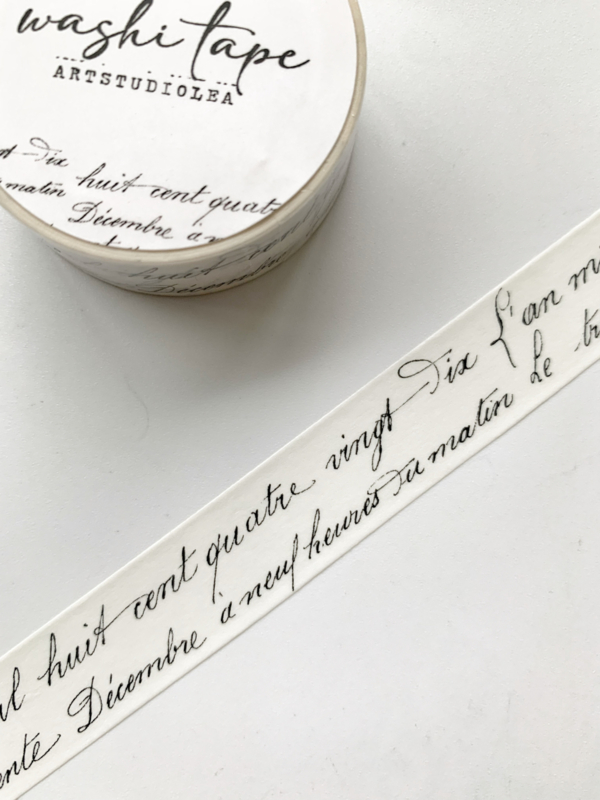 washi tape
ARTSTUDIOLEA
Dix huit cent quat
matin
Décembre à n
huit cent quatre vingt Dix L'an
Décembre à neuf heures Du matin Le